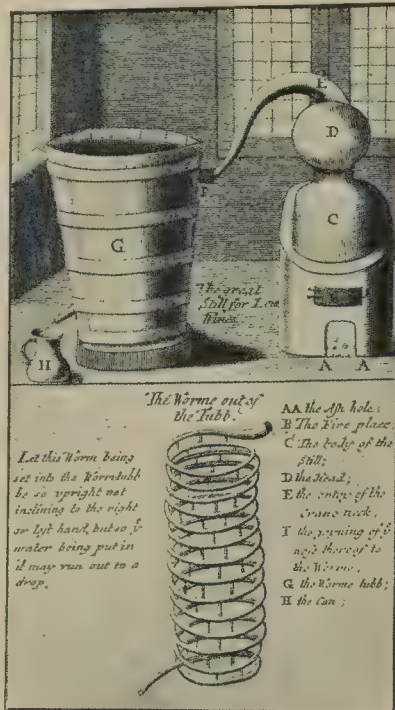 E
D
F
C
G
The great
Still for Low
Wines
B
H
A A
The Worme out of
the Tubb.
Let this Worm being
set into the Wormtubb
be so upright not
inclining to the right
or lyft hand, but so yͤ
water being put in
it may run out to a
drop.
AA the Ash hole;
B The Fire place;
C The body of the
Still;
D the Head;
E the entry of the
Crane neck,
F the joyning of yͤ
nose thereof to
the Worme,
G the Worme tubb;
H the Can;